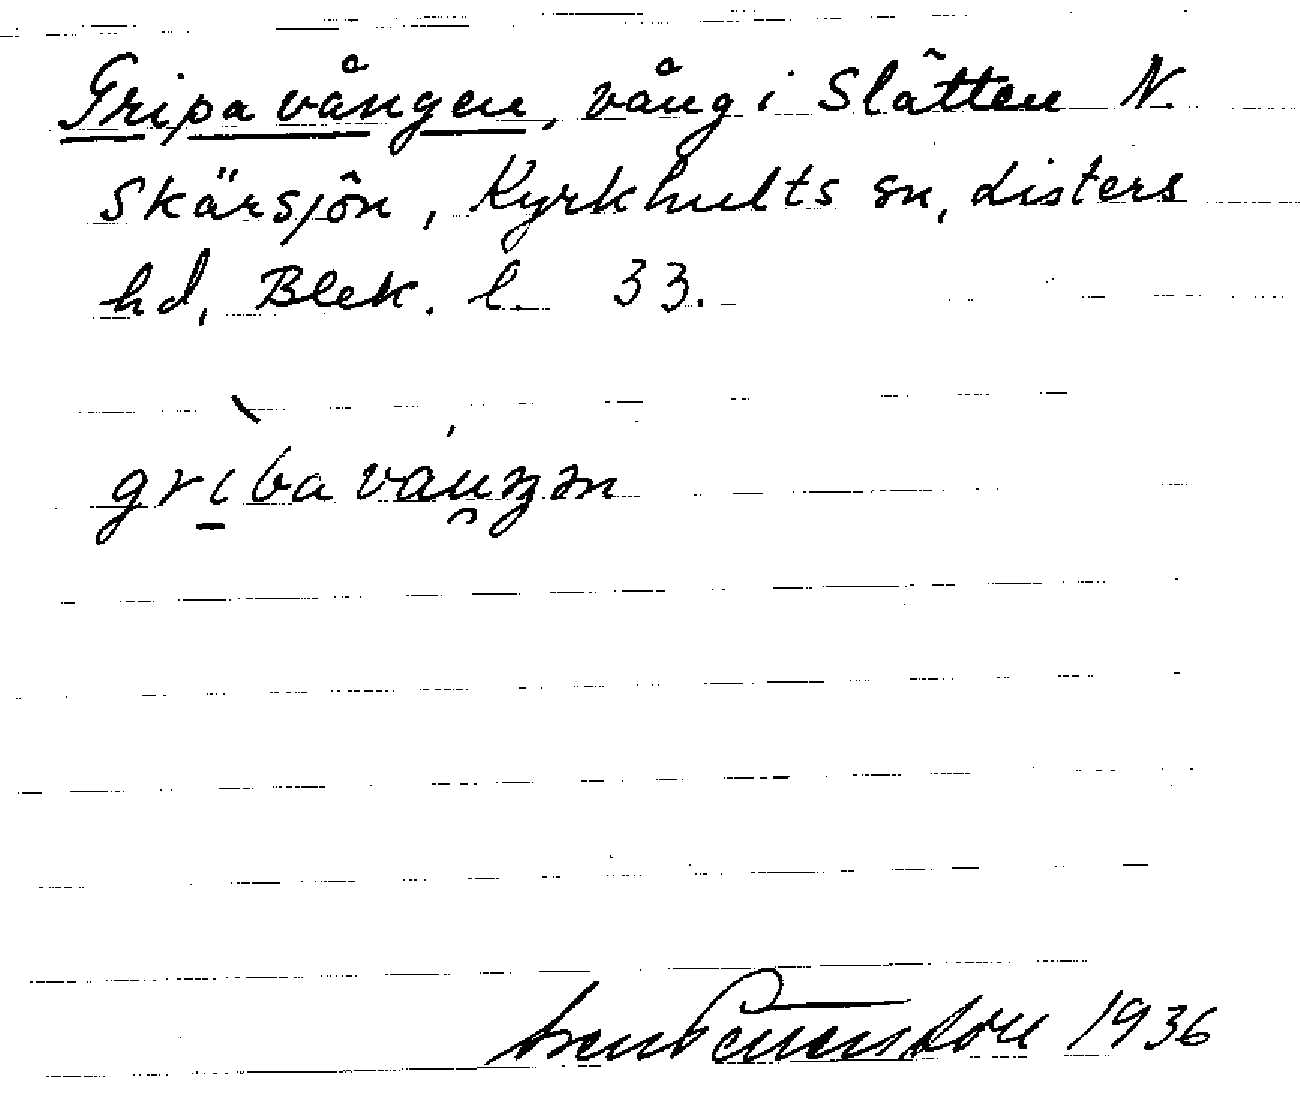 Gripavången, vång i Slätten N.
Skärsjön, Kyrkhults sn, Listers
hd, Blek. l. 33.
griba váu̯ŋən
1936